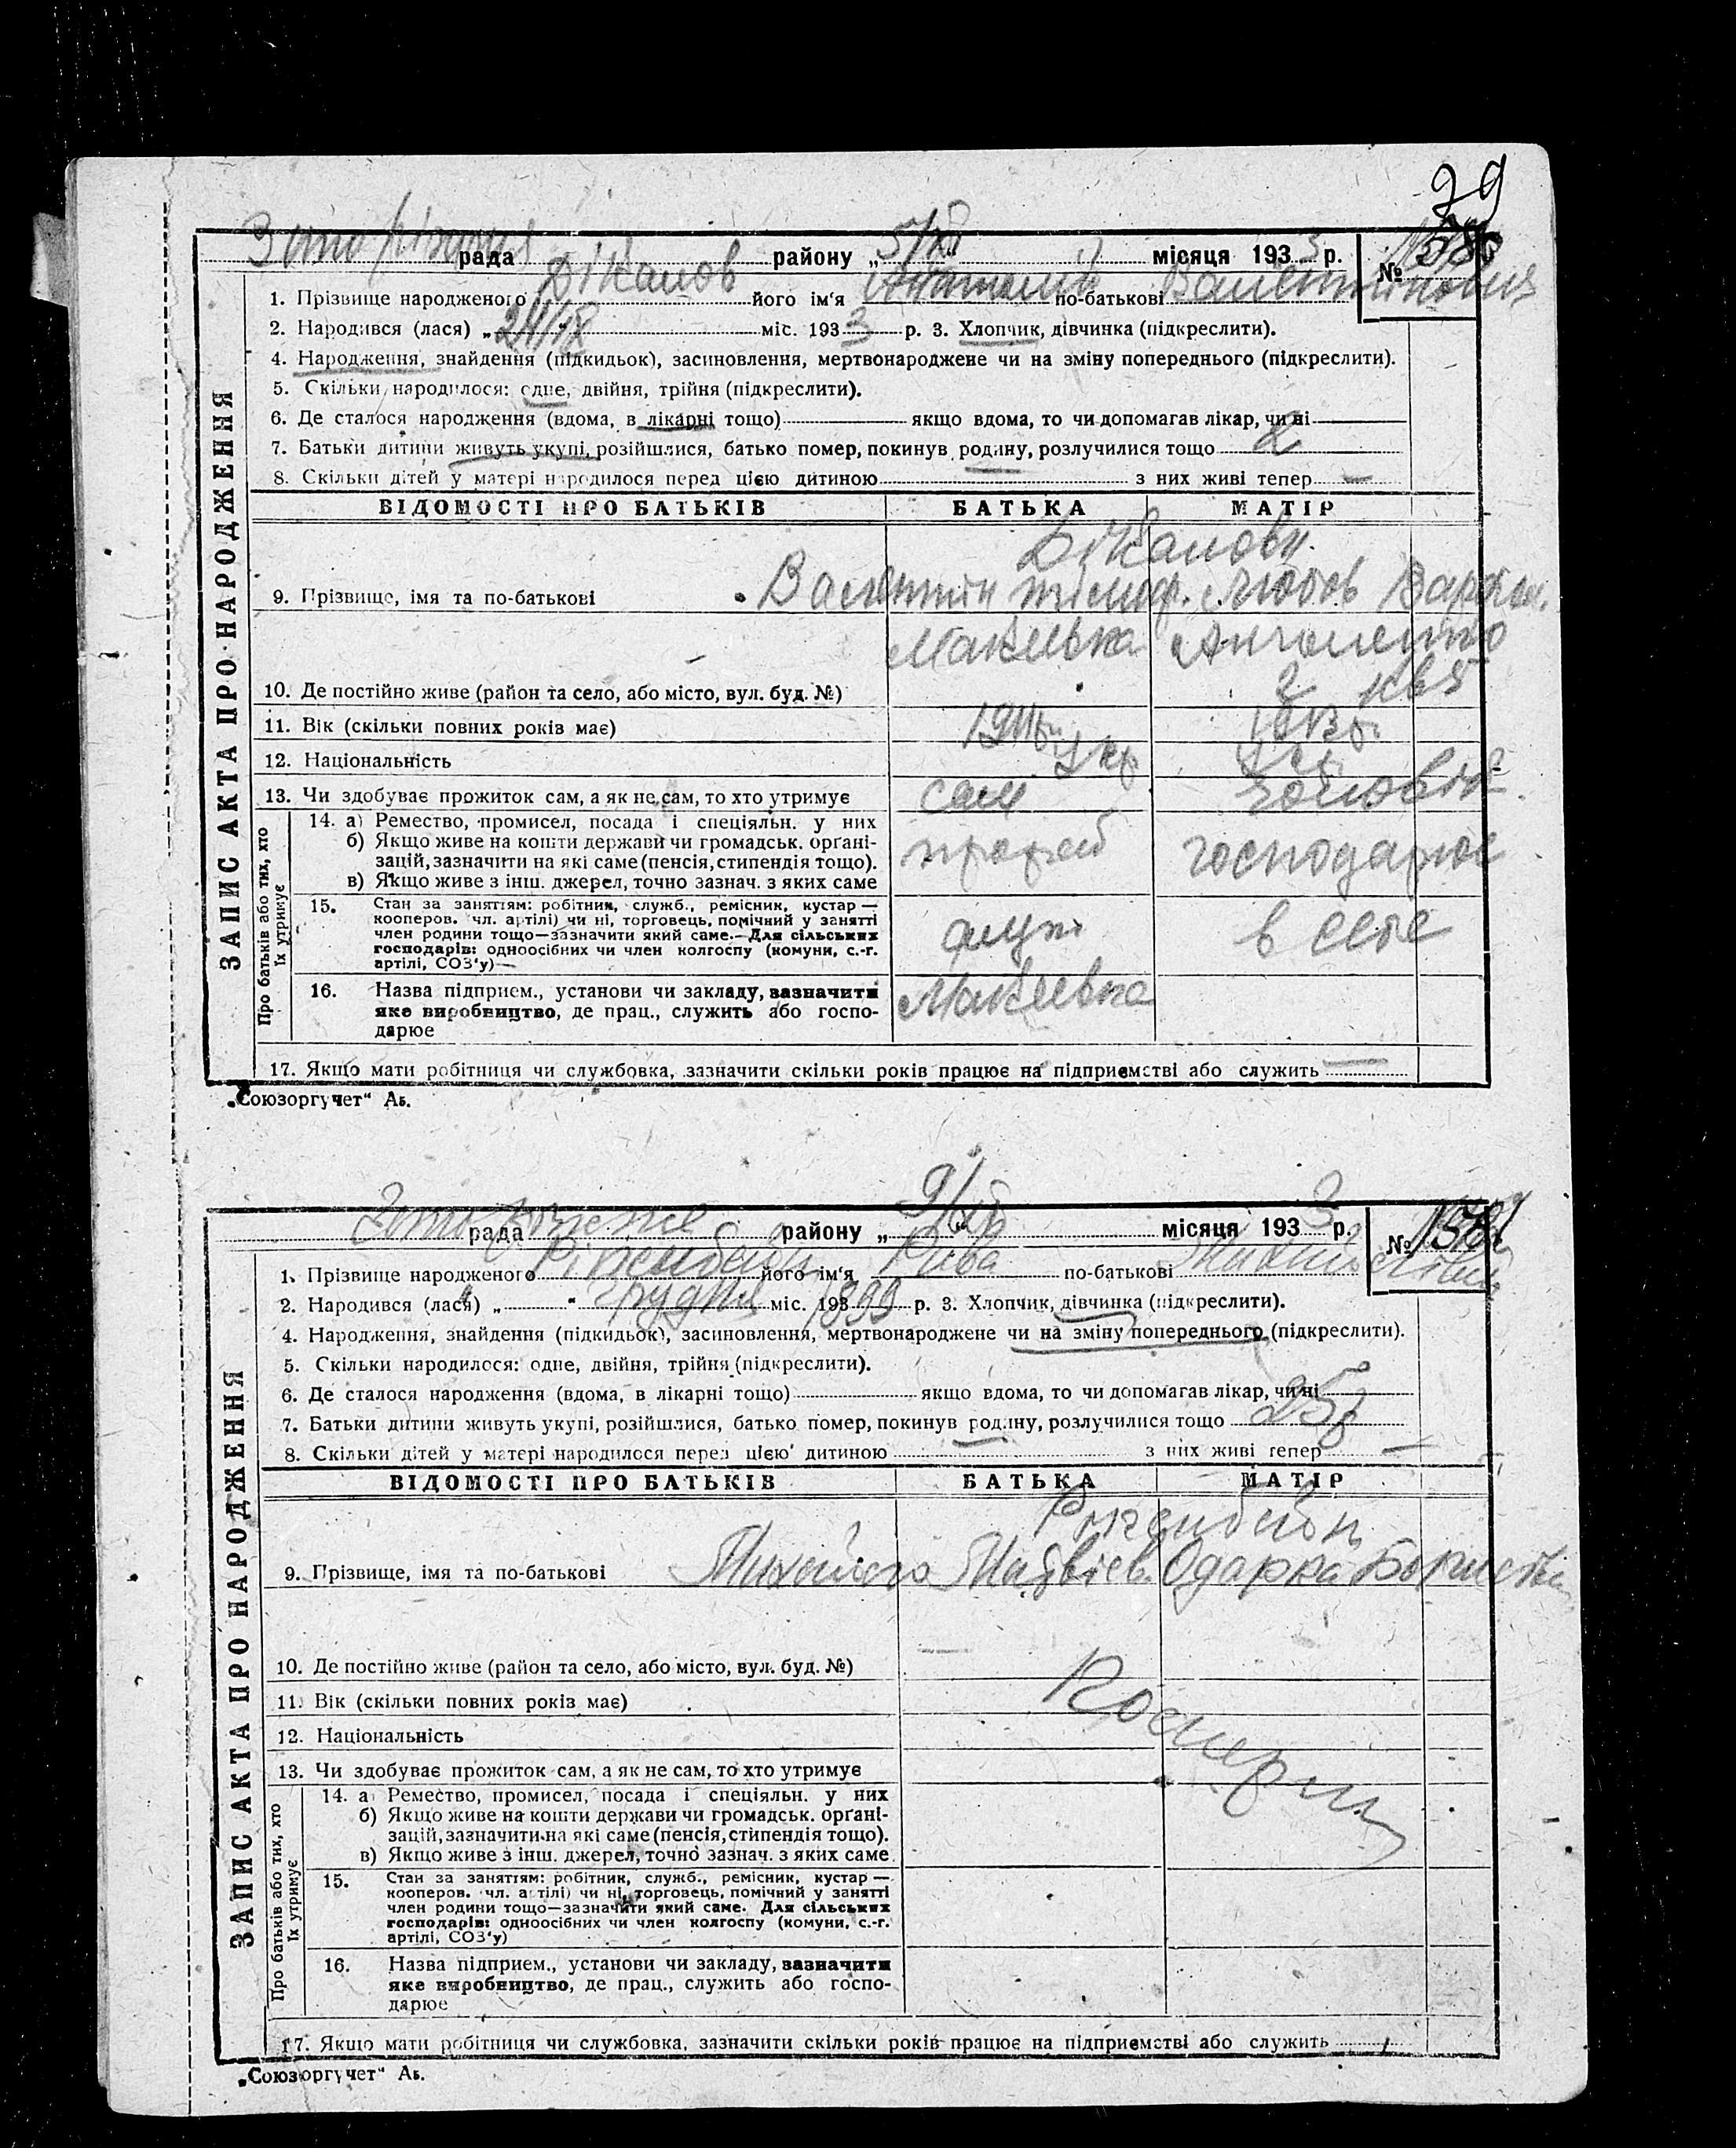 79
рада району „ 5/XII місяця 1933 р. №
1. Прізвище народженого Діканов його ім'я Анатолій по-батькові Валентинович
2. Народився (лася) „ міс. 1933 р. 3. Хлопчик, дівчинка (підкреслити).
4. Народження, знайдення (підкидьок), засиновлення, мертвонароджене чи на зміну попереднього (підкреслити).
5. Скільки народилося: одне, двійня, трійня (підкреслити).
6. Де сталося народження (вдома, в лікарні тощо) якщо вдома, то чи допомагав лікар, чи ні
7. Батьки дитини живуть укупі, розійшлися, батько помер, покинув родину, розлучилися тощо 2
8. Скільки дітей у матері народилося перед цією дитиною з них живі тепер —
ЗАПИС АКТА ПРО НАРОДЖЕННЯ
ВІДОМОСТІ ПРО БАТЬКІВ БАТЬКА МАТІР
Діканови
9. Прізвище, імя та по-батькові Валентин Любов
Макіевка
10. Де постійно живе (район та село, або місто, вул. буд. №)
11. Вік (скільки повних років має) 1911 1913
12. Національність Укр
13. Чи здобуває прожиток сам, а як не сам, то хто утримує сам чоловік
Про батьків або тих, хто їх утримує
14. а) Ремество, промисел, посада і спеціяльн. у них
б) Якщо живе на кошти держави чи громадськ. орґані-
зацій, зазначити на які саме (пенсія, стипендія тощо). прораб господарює
в) Якщо живе з інш. джерел, точно зазнач. з яких саме
15. Стан за заняттям: робітник, служб., ремісник, кустар —
кооперов. чл. артілі) чи ні, торговець, помічний у занятті
член родини тощо—зазначити який саме.—Для сільських
господарів: одноосібних чи член колгоспу (комуни, с.-г.
артілі, СОЗ'у)—
16. Назва підприєм., установи чи закладу, зазначити Макіевка
яке виробництво, де прац., служить або госпо-
дарює
17. Якщо мати робітниця чи службовка, зазначити скільки років працює на підприємстві або служить —
„Союзоргучет“ Аб.
рада району „ 9/XII місяця 1933 р. №
1. Прізвище народженого його ім'я Рива по-батькові
2. Народився (лася) „ “ грудня міс. 193 1899 р. 3. Хлопчик, дівчинка (підкреслити).
4. Народження, знайдення (підкидьок), засиновлення, мертвонароджене чи на зміну попереднього (підкреслити).
5. Скільки народилося: одне, двійня, трійня (підкреслити).
6. Де сталося народження (вдома, в лікарні тощо) якщо вдома, то чи допомагав лікар, чи ні
7. Батьки дитини живуть укупі, розійшлися, батько помер, покинув родину, розлучилися тощо
8. Скільки дітей у матері народилося перед цією дитиною з них живі тепер —
ЗАПИС АКТА ПРО НАРОДЖЕННЯ
ВІДОМОСТІ ПРО БАТЬКІВ БАТЬКА МАТІР
9. Прізвище, імя та по-батькові Михайло Матвіев. Одарка
10. Де постійно живе (район та село, або місто, вул. буд. №)
11. Вік (скільки повних років має)
12. Національність
13. Чи здобуває прожиток сам, а як не сам, то хто утримує
Про батьків або тих, хто їх утримує
14. а) Ремество, промисел, посада і спеціяльн. у них
б) Якщо живе на кошти держави чи громадськ. орґані-
зацій, зазначити на які саме (пенсія, стипендія тощо).
в) Якщо живе з інш. джерел, точно зазнач. з яких саме.
15. Стан за заняттям: робітник, служб., ремісник, кустар —
кооперов. чл. артілі) чи ні, торговець, помічний у занятті
член родини тощо—зазначити який саме. Для сільських
господарів: одноосібних чи член колгоспу (комуни, с.-г.
артілі, СОЗ'у)
16. Назва підприєм., установи чи закладу, зазначити
яке виробництво, де прац., служить або госпо-
дарює
17. Якщо мати робітниця чи службовка, зазначити скільки років працює на підприємстві або служить
„Союзоргучет“ Аб.